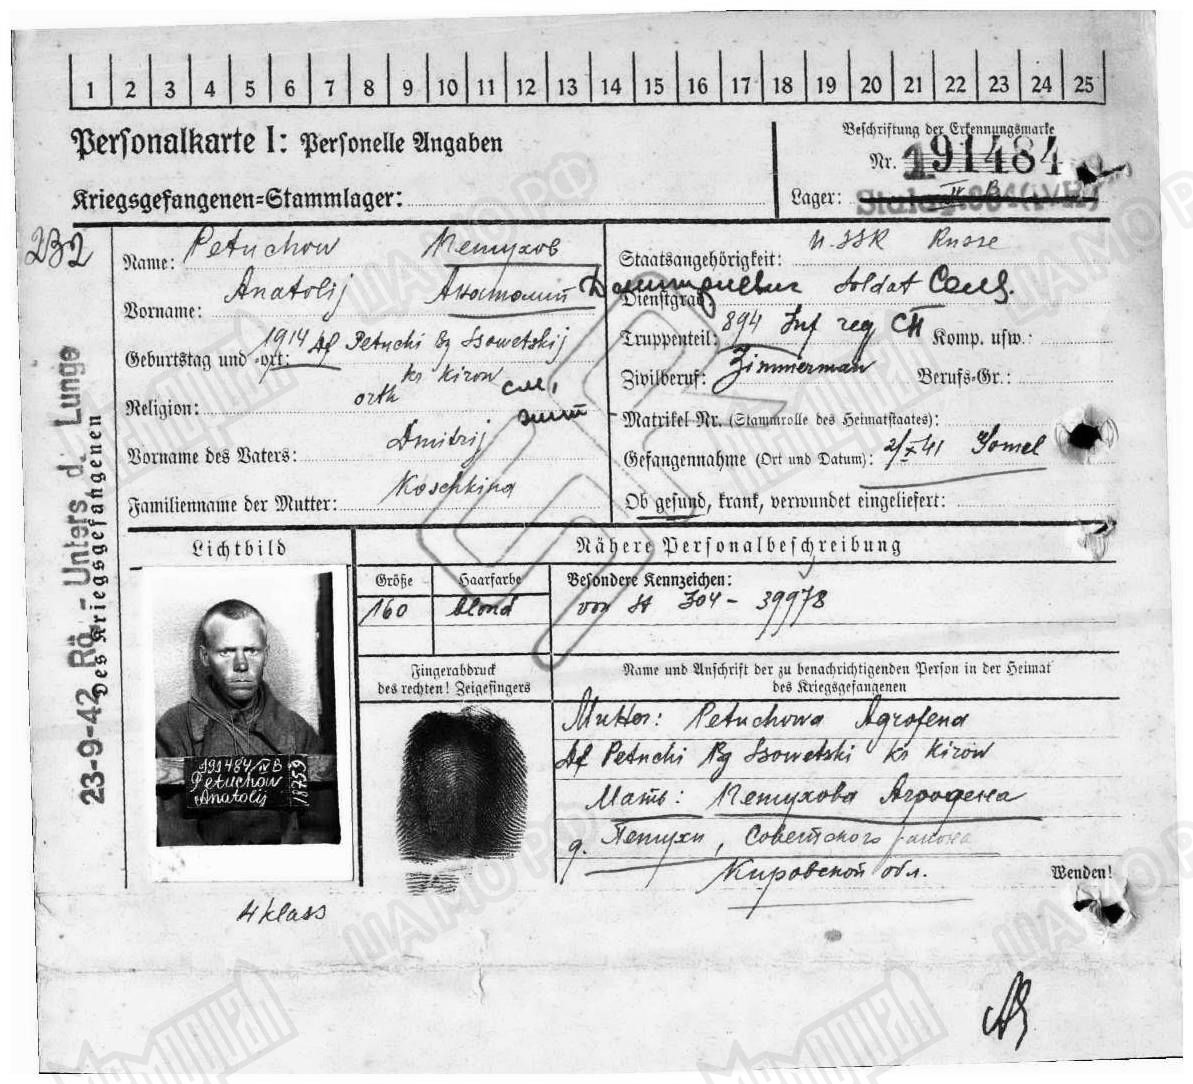 1 2 3 4 5 6 7 8 9 10 11 12 13 14 15 16 17 18 19 20 21 22 23 24 25
Personalkarte I: Personelle Angaben
Beschriftung der Erkennungsmarke
Nr. 191484
Kriegsgefangenen=Stammlager:
Lager: Stalag IV B
2B2
Name: Petuchow Петухов
Vorname: Anatolij Анатолий Дмитриевич
Geburtstag und -ort: 1914 Df Petuchi Bg Ssowetskij
kr Kirow
Religion: orth
Vorname des Vaters: Dmitrij
Familienname der Mutter: Koschkina
Staatsangehörigkeit: U.SSR Russe
Dienstgrad: Soldat
Truppenteil: 894 Inf reg СП Komp. usw.:
Zivilberuf: Zimmerman Berufs=Gr.:
Matrikel Nr. (Stammrolle des Heimatstaates):
Gefangennahme (Ort und Datum): 2/X 41 Gomel
Ob gesund, krank, verwundet eingeliefert:
23-9-42 Rö.-Unters d. Lunge
Des Kriegsgefangenen
Lichtbild
Nähere Personalbeschreibung
Größe Haarfarbe Besondere Kennzeichen:
160 blond von St 304 - 39978
Fingerabdruck
des rechten! Zeigefingers
Name und Anschrift der zu benachrichtigenden Person in der Heimat
des Kriegsgefangenen
Mutter: Petuchowa Agrofena
Df Petuchi Bg Ssowetski kr Kirow
Мать: Петухова Агрофена
д. Петухи, Советского района
Кировской обл.
Wenden!
191484/IV B
Petuchow
Anatolij
18759
4 klass
ЦАМО РФ
Мемориал